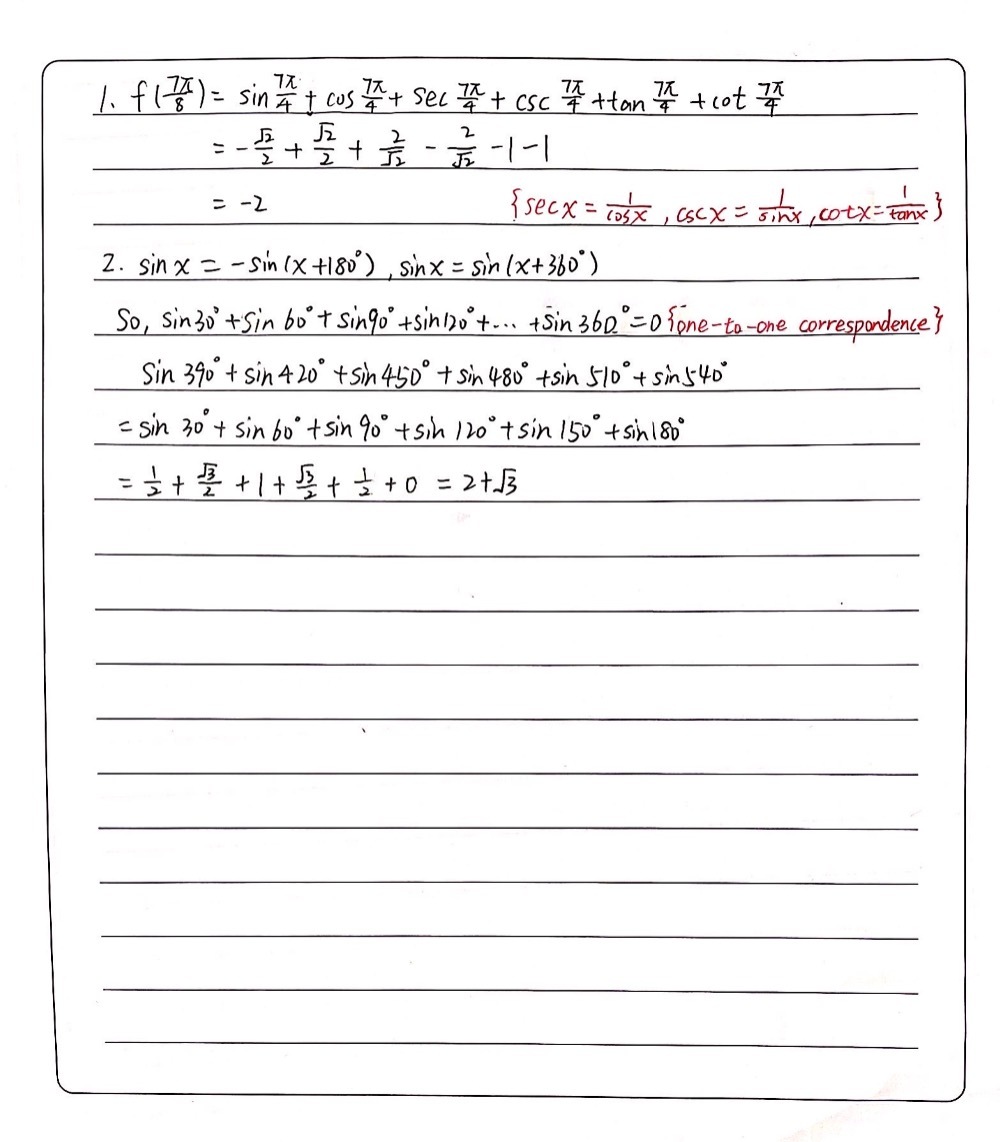 1. f(7π/8) = sin 7π/4 + cos 7π/4 + sec 7π/4 + csc 7π/4 + tan 7π/4 + cot 7π/4
= -√2/2 + √2/2 + 2/√2 - 2/√2 - 1 - 1
= -2 {sec x = 1/cosx , csc x = 1/sinx , cotx = 1/tanx}
2. sin x = -sin (x+180°) , sinx = sin (x+360°)
So, sin30° + sin 60° + sin90° + sin120° + ... + sin 360° = 0 {one-to-one correspondence}
Sin 390° + sin 420° + sin 450° + sin 480° + sin 510° + sin 540°
= sin 30° + sin 60° + sin 90° + sin 120° + sin 150° + sin180°
= 1/2 + √3/2 + 1 + √3/2 + 1/2 + 0 = 2+√3